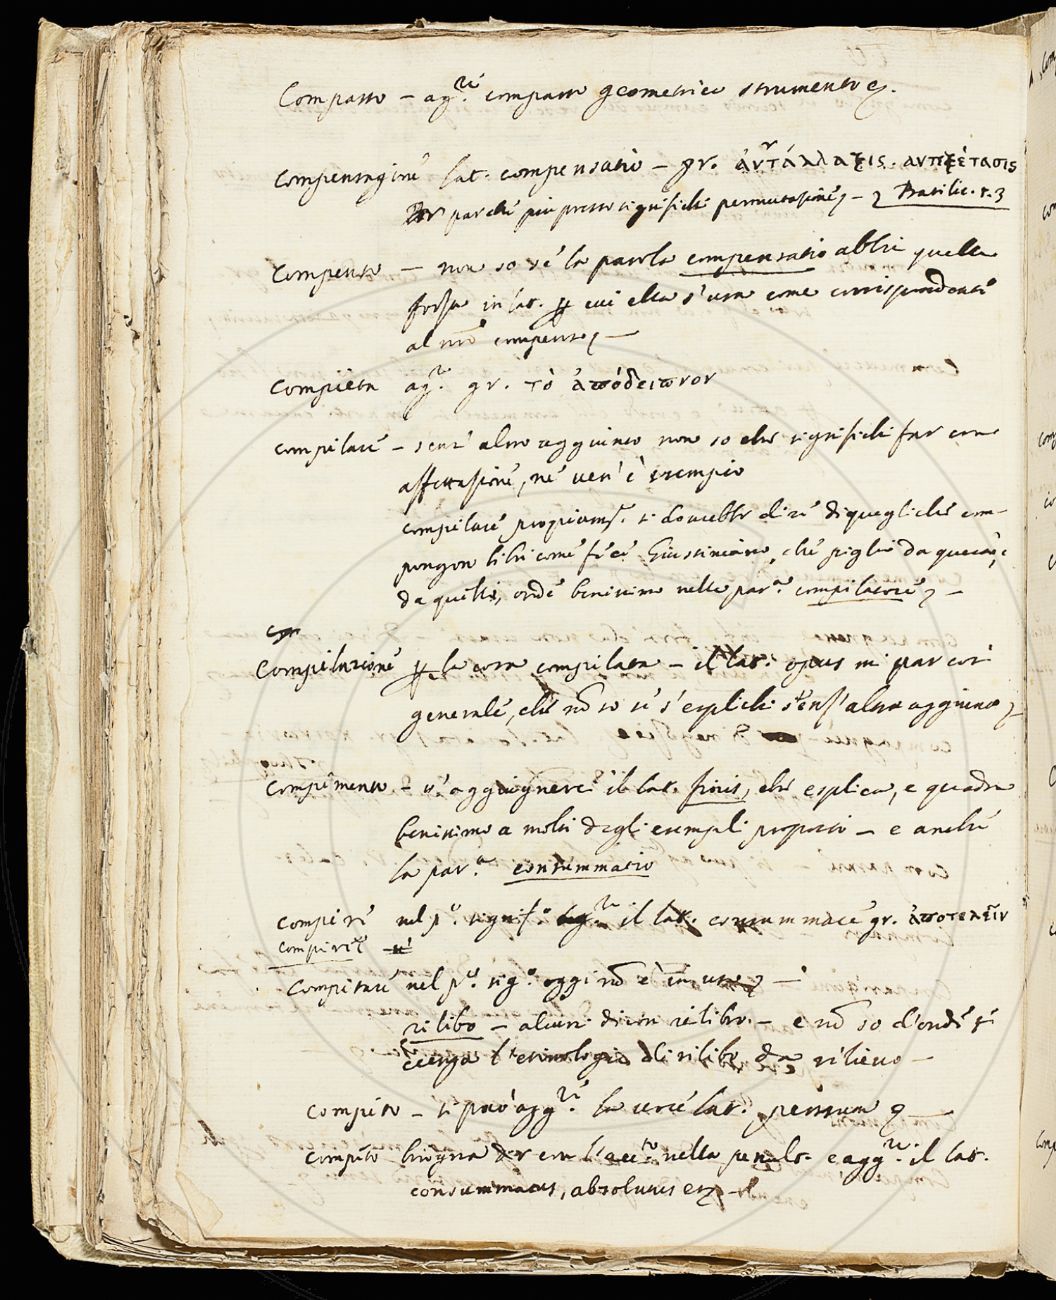 Compasso – agg.re compasso geometrico strumento
Compensagione lat. compensatio – gr. ἀντάλλαξις. αντιξέτασις
par che piu presto significhi permutatione – Basilic. t. 3
Compenso – non so se la parola compensatio abbia quella
forza in lat. per cui ella s'usa come corrispondente
al nro compenso –
Compieta agg.re gr. τὸ ἀπόδειπνον
Compilare – senz' altro aggiunto non so che significhi far con
affettatione, ne veri è esempio
compilare propriam.te si dovrebbe dire di quegli che com-
pongon libri come fece Giustiniano, che piglia da questo, e
da quelli, onde benissimo nella par.a compilatore –
Com
Compilazione per la cosa compilata – il lat. opus mi par cosi
generale, che nō so se s'esplichi senz' altro aggiunto
Compimento – v'aggiugnerei il lat. finis, che esplica, e quadra
benissimo a molti degli esempli proposti – e anche
la par.a consummatio
Compire nel p.o signif.o il lat. consummare gr. ἀποτελεῖν
compire –
Compitare nel p.o sig.o oggi nō è in uso –
rilibo – alcuni dicon relibo – e nō so d'onde si
venga l'etimologia di rilibo da rilievo –
Compito – si può agg.re la voce lat. pensum –
compito bisogna der con l'acc.to nella penult. e agg.re il lat.
consummatus, absolutus